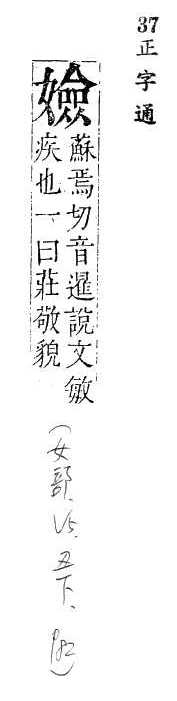 37
正字通
嬐
蘇焉切音暹說文敏
疾也一曰莊敬貌
(女部、丑下、)